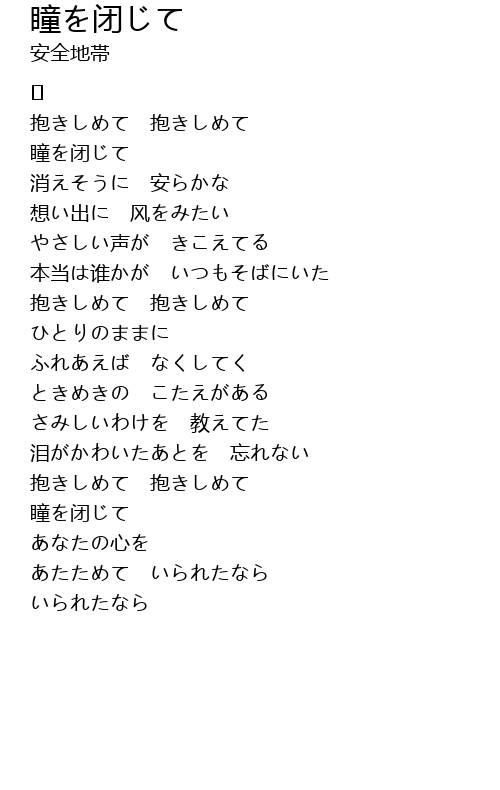 瞳を闭じて
安全地帯
抱きしめて　抱きしめて
瞳を闭じて
消えそうに　安らかな
想い出に　风をみたい
やさしい声が　きこえてる
本当は谁かが　いつもそばにいた
抱きしめて　抱きしめて
ひとりのままに
ふれあえば　なくしてく
ときめきの　こたえがある
さみしいわけを　教えてた
泪がかわいたあとを　忘れない
抱きしめて　抱きしめて
瞳を闭じて
あなたの心を
あたためて　いられたなら
いられたなら